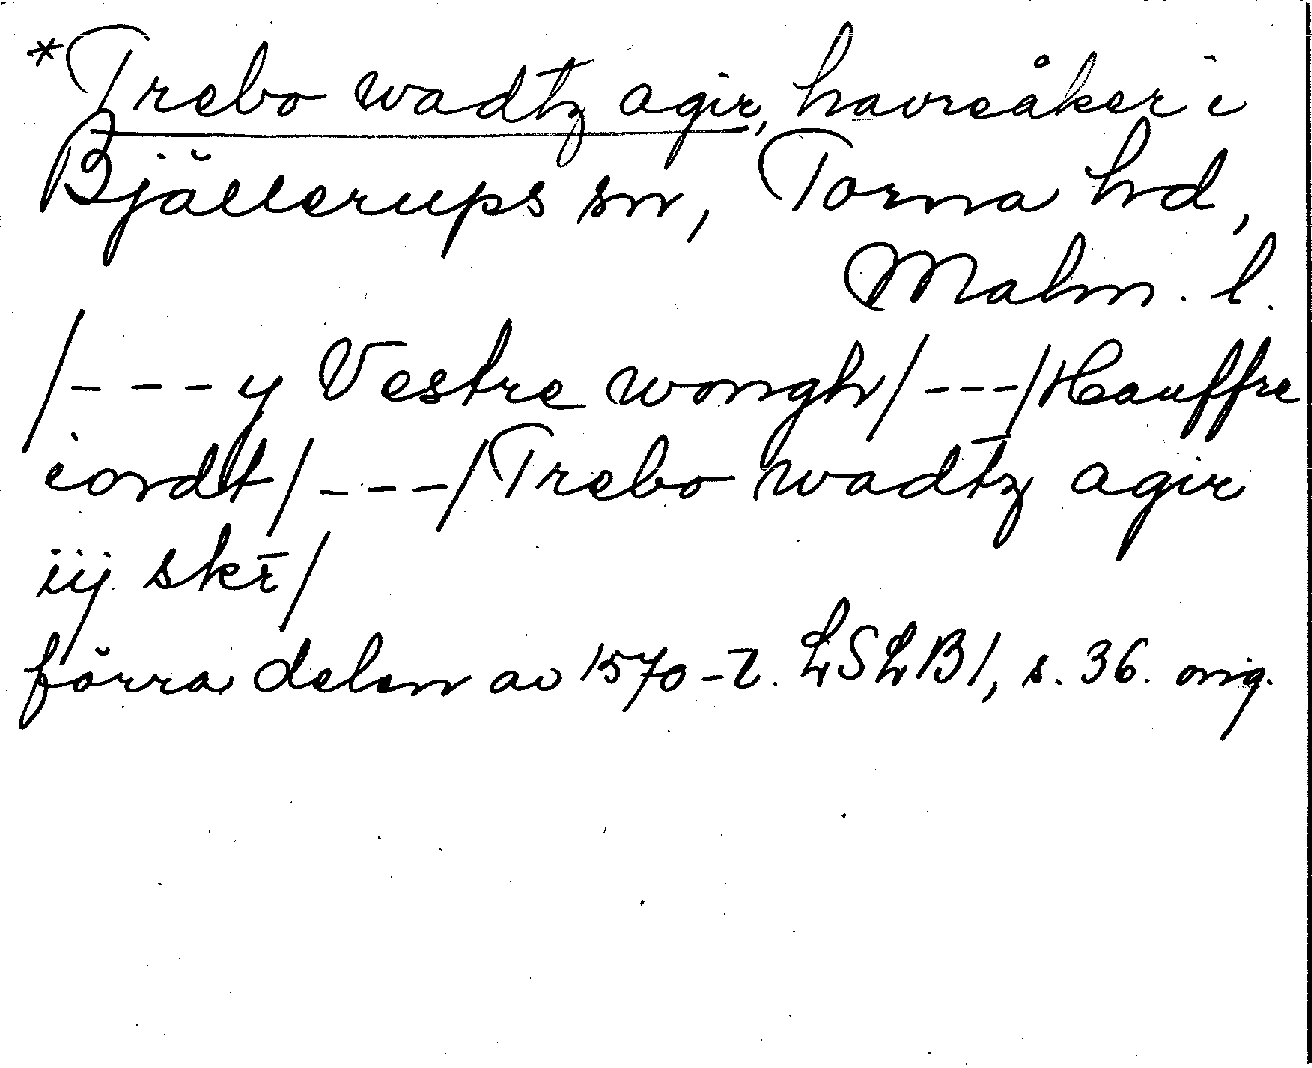 *Trebo wadtz agir, havreåker i
Bjällerups sn, Torna hd,
Malm. l.
/---y Vestre wongh/---/Hauffre
iordt/---/Trebo wadtz agir
iij skr̄/
förra delen av 1570-t. LSLB1, s. 36. orig.